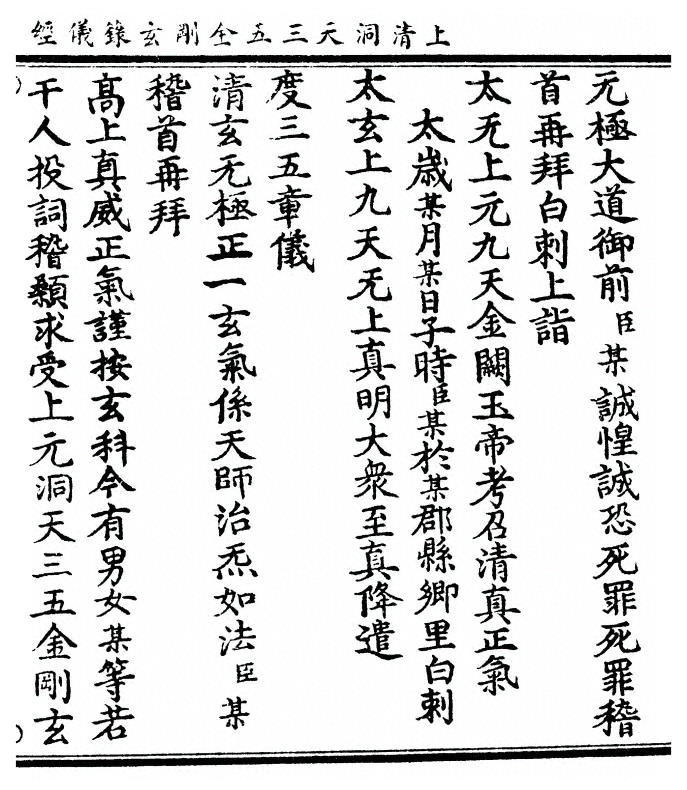 上清洞天三五金剛玄錄儀經
元極大道御前臣某誠惶誠恐死罪死罪稽
首再拜白刺上詣
太无上元九天金闕玉帝考召清真正氣
太歲某月某日子時臣某於某郡縣鄉里白刺
太玄上九天无上真明大衆至真降遣
度三五章儀
清玄无極正一玄氣係天師治炁如法臣某
稽首再拜
高上真威正氣謹按玄科今有男女某等若
干人投詞稽顙求受上元洞天三五金剛玄